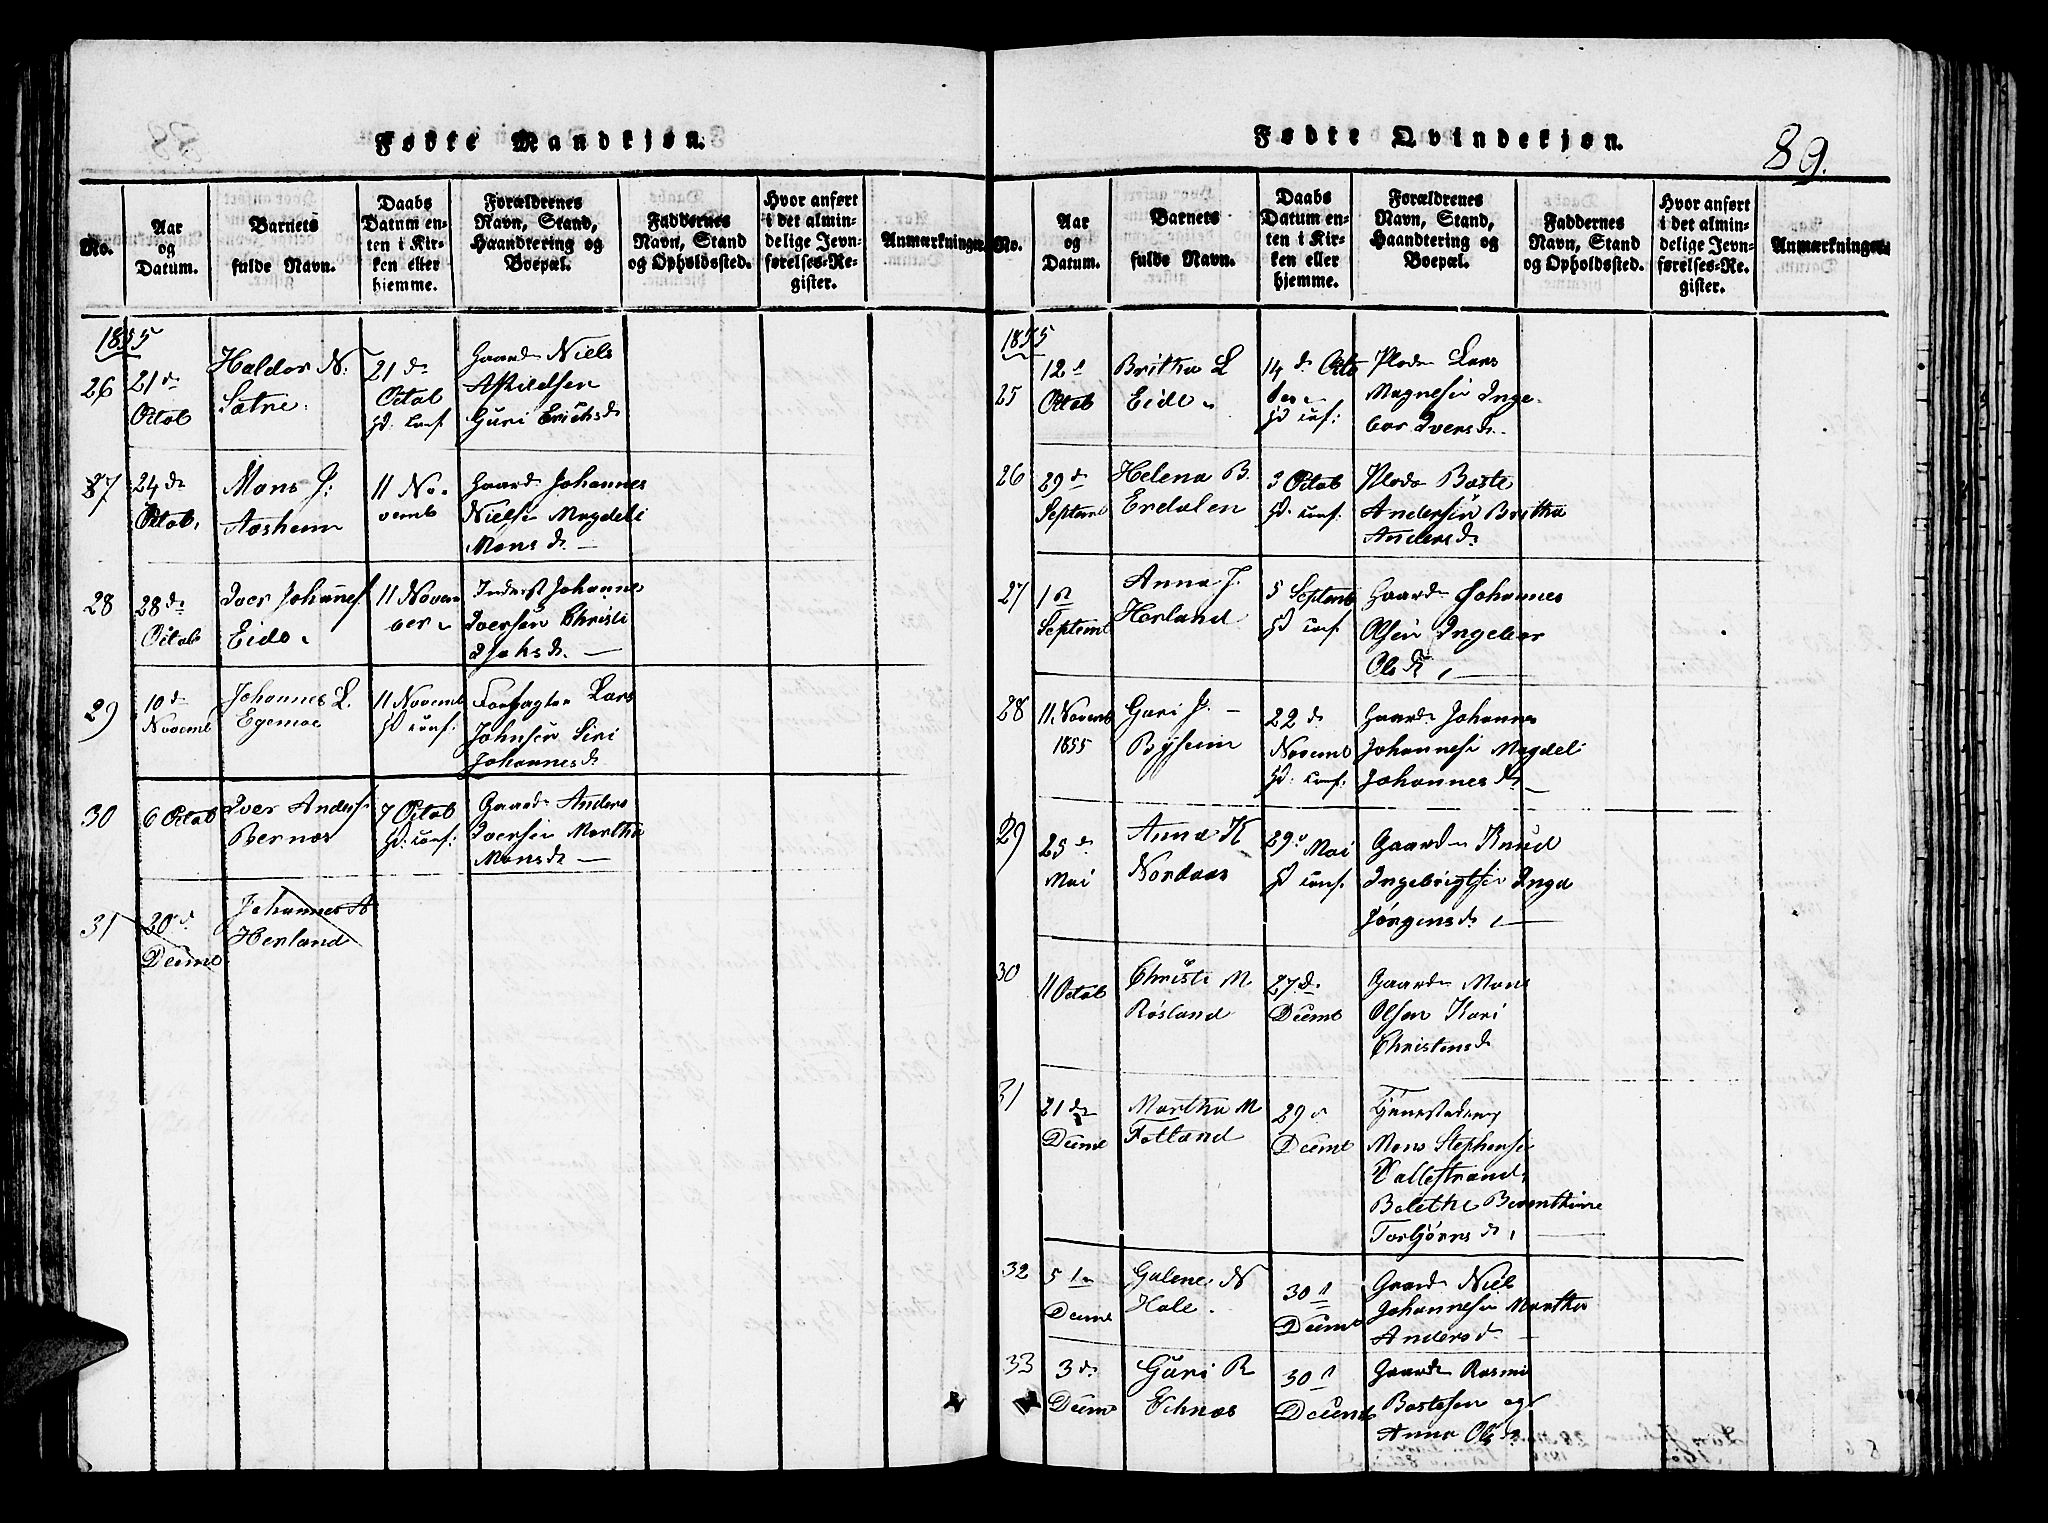 Fødte Mandkjøn.
No.
Aar
og
Datum.
Barnets
fulde Navn.
Daabs
Datum en-
ten i Kir-
ken eller
hjemme.
Forældrenes
Navn, Stand,
Haandtering og
Boepæl.
Faddernes
Navn, Stand
og Opholdssted.
Hvor anført
i det almin-
delige Jevn-
førelses-Re-
gister.
Anmærkninger.
1855
26
21 dn
Octob
Haldor N:
Sætre
21 dn
Octob
hd. conf.
Gaardm Niels
Askildsen
Guri Erichsdr
27
24 dn
Octob.
Mons J:
Aasheim
11 No-
vemb
Gaardm Johannes
Nielsen Magdeli
Monsdr. —
28
28 dn
Octob
Iver Johannes.
Eide
11 Novem
ber
Inderst Johannes
Iversen Christi
Jachsdr. —
29
10 dn
Novemb
Johannes L.
Egemoe
11 Novemb
hd conf.
Forpagter Lars
Johnsen Siri
Johannesdr
30
6 Octob
Iver Anders.
Bernæs
7 Octob
hd. conf:
Gaardm Anders
Iversen Martha
Monsdr —
31
30 d.
Decemb
Johannes A
Herland
Fødte Qvindekjøn.
89.
No.
Aar
og
Datum.
Barnets
fulde Navn.
Daabs
Datum en-
ten i Kir-
ken eller
hjemme.
Forældrenes
Navn, Stand,
Haandtering og
Boepæl.
Faddernes
Navn, Stand
og Opholdssted.
Hvor anført
i det almin-
delige Jevn-
førelses-Re-
gister.
Anmærkninger.
1855
25
12 d
Octob
Britha L
Eide
14 d. Octo
ber
hd conf:
Pladsm Lars
Magnesen Inge-
bor Iversdr.
26
29 d
Septemb
Helena B.
Erdalen
3 Octob
hd. conf.
Pladsm Baste
Andersen Britha
Andersdr
27
1 st
Septemb
Anna J.
Herland
5 Septemb
hd conf.
Gaardm Johannes
Olsen Ingebor
Olsdr, —
28
11. Novemb
1855
Guri J. —
Byheim
22 d
Novemb
hd: conf.
Gaardm Johannes
Johannesen Magdeli
Johannesdr. —
29
25 d.
Mai
Anna K
Nordaas
29 d Mai
hd conf.
Gaardm Knud
Ingebrigtsen Inga
Jørgensdr, —
30
11 Octob
Christi M
Røsland
27 d.
Decemb
Gaardm Mons
Olsen Kari
Christensdr
31
21 de
Decemb
Martha M
Fotland
29 d
Decemb
Tjenestedreng
Mons Stephensen
Vallestrand.
Bolethe Berenthine
Torbjørnsdr, —
32
5 te
Decemb
Galene N
Hole.
30 d
Decemb
Gaardm Niels
Johannesen Martha
Andersd.
33
3 d.
Decemb
Guri R
Echnæs
30 d
Decemb
Gaardm Rasmus
Bastesen og
Anna Olsdr